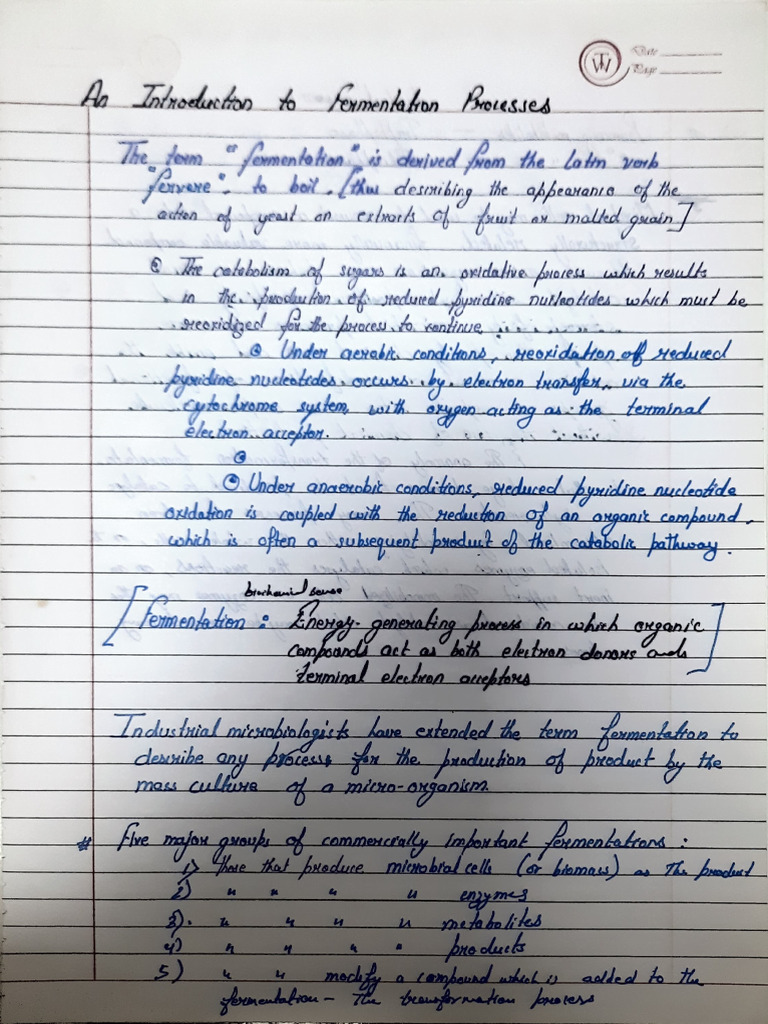 Date
Page
TW
An Introduction to Fermentation Processes
The term "fermentation" is derived from the latin verb
"fervere". to boil. [thus describing the appearance of the
action of yeast on extracts of fruit or malted grain]
The catabolism of sugars is an oxidative process which results
in the production of reduced pyridine nucleotides which must be
reoxidized for the process to continue.
Under aerobic conditions, reoxidation of reduced
pyridine nucleotides occurs by electron transfer, via the
cytochrome system, with oxygen acting as the terminal
electron acceptor.
Under anaerobic conditions, reduced pyridine nucleotide
oxidation is coupled with the reduction of an organic compound,
which is often a subsequent product of the catabolic pathway.
biochemical sense
[Fermentation : Energy-generating process in which organic
compounds act as both electron donors and
terminal electron acceptors]
Industrial microbiologists have extended the term fermentation to
describe any process for the production of product by the
mass culture of a micro-organism.
# Five major groups of commercially important fermentations :
1) those that produce microbial cells (or biomass) as The product
2) " " " " enzymes
3) " " " " metabolites
4) " " " " products
5) " " modify a compound which is added to the
fermentation - The transformation process